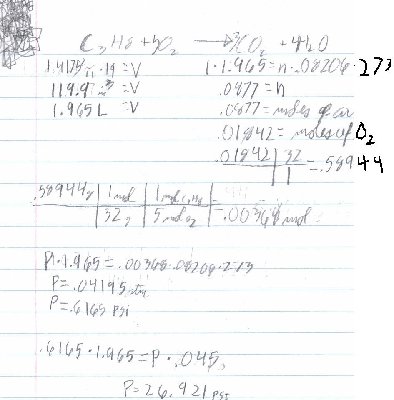 C3H8 + 5O2 → 3CO2 + 4H2O
1 · 1.965 = n · .08206 · 273
119.9 = V
.0877 = n
1.965 L = V
.0877 = moles of air
.01842 = moles of O2
.01842 | 32 = .58944
1
.58944g | 1 mol | 1 mol C3H8
32g | 5 mol O2 = .00368 mol
P · 1.965 = .00368 · .08206 · 273
P = .04195 atm
P = .6165 psi
.6165 · 1.965 = P · .045
P = 26.921 psi